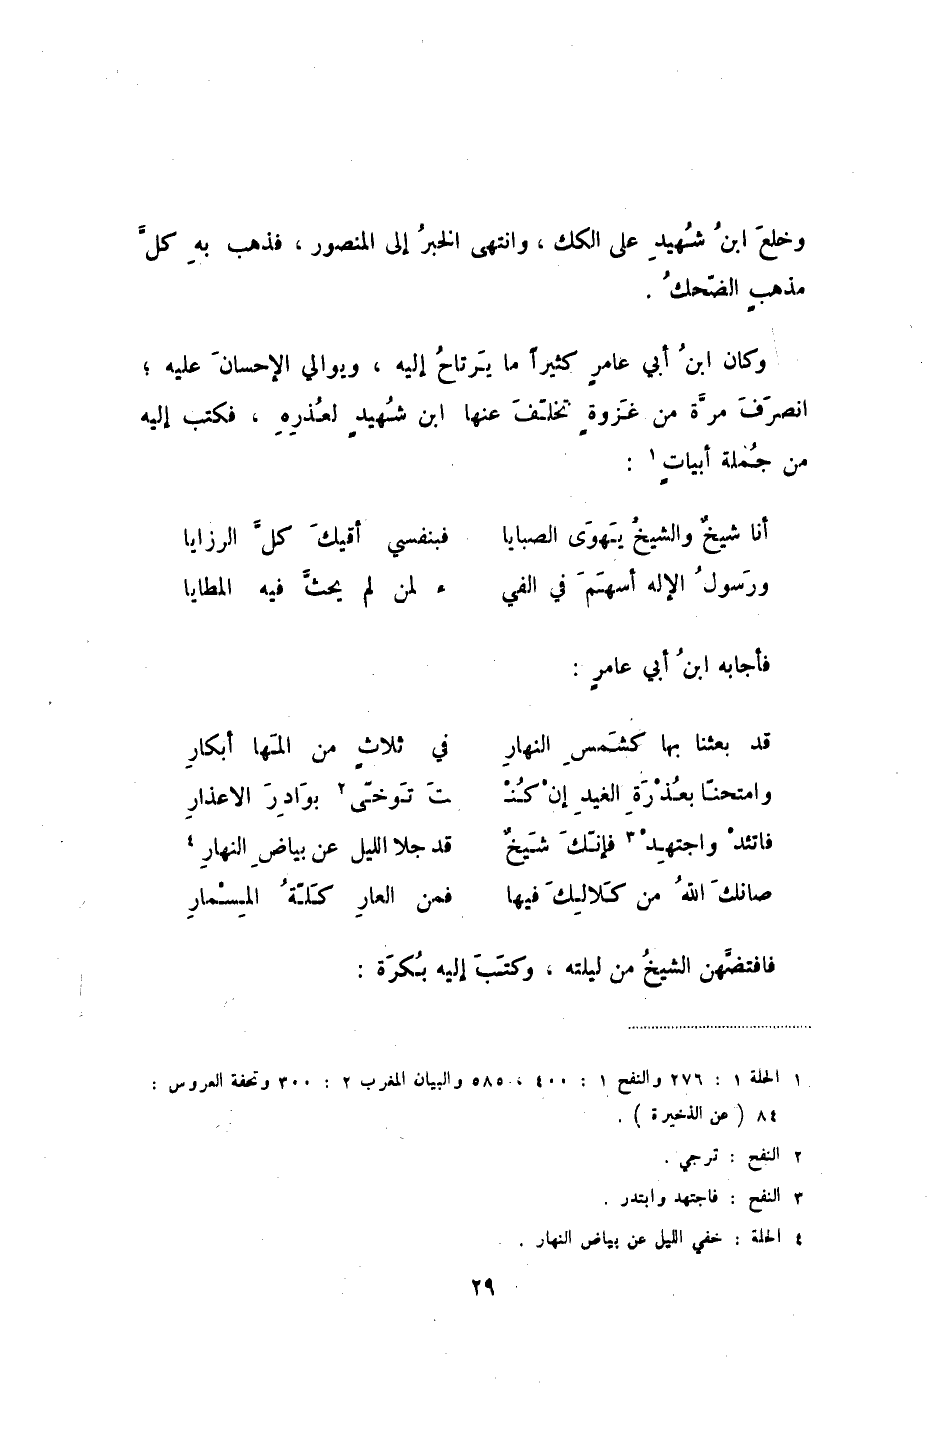 وخلعَ ابنُ شُهيدٍ على الكك ، وانتهى الخبرُ إلى المنصور ، فذهب بهِ كلَّ
مذهبٍ الضّحكُ .
وكان ابنُ أبي عامرٍ كثيراً ما يَرتاحُ إليه ، ويوالي الإحسانَ عليه ؛
انصرَفَ مرَّة من غَزوةٍ تخلّفَ عنها ابن شُهيدٍ لعُذرِهِ ، فكتب إليه
من جُملة أبياتٍ ١ :
أنا شيخٌ والشيخُ يَهوَى الصبايا فبنفسي أقيكَ كلَّ الرزايا
ورَسولُ الإله أسهَمَ في الفي ء لمن لم يحثَّ فيه المطايا
فأجابه ابنُ أبي عامرٍ :
قد بعثنا بها كشَمسِ النهارِ في ثلاثٍ من المَها أبكارِ
وامتحنّا بعُذْرَةِ الغيدِ إنْ كُنْـ ـتَ تَوخّى ٢ بوَادِرَ الاعذارِ
فاتئدْ واجتهِدْ ٣ فإنّكَ شَيخٌ قد جلا الليل عن بياضِ النهارِ ٤
صانكَ اللهُ من كَلالِكَ فيها فمن العارِ كَلّةُ المِسْمارِ
فافتضَّهن الشيخُ من ليلته ، وكتَبَ إليه بُكرَة :
١ الحلة ١ : ٢٧٦ والنفح ١ : ٤٠٠ ، ٥٨٥ والبيان المغرب ٢ : ٣٠٠ وتحفة العروس :
٨٤ ( عن الذخيرة ) .
٢ النفح : ترجي .
٣ النفح : فاجتهد وابتدر .
٤ الحلة : خفي الليل عن بياض النهار .
٢٩